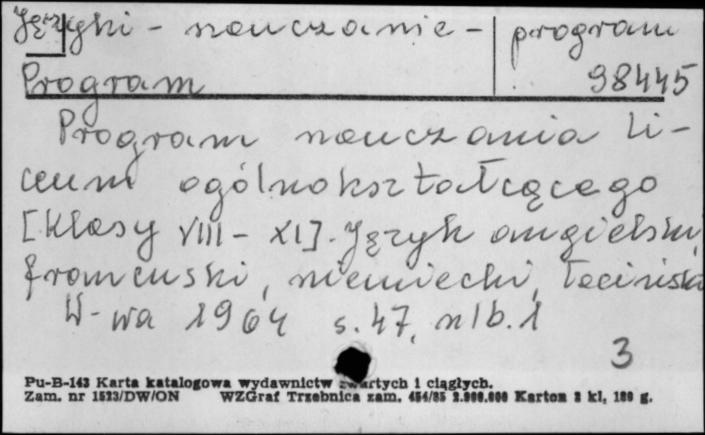 Języki - nauczanie - program
Program 98445
Program nauczania li-
ceum ogólnokształcącego
[klasy VIII - XI]. Język angielski,
francuski, niemiecki, łaciński
W-wa 1964 s. 47, nlb. 1
3
Pu-B-143 Karta katalogowa wydawnictw zwartych i ciągłych.
Zam. nr 1523/DW/ON WZGraf Trzebnica zam. 454/85 2.000.000 Karton 2 kl, 180 g.